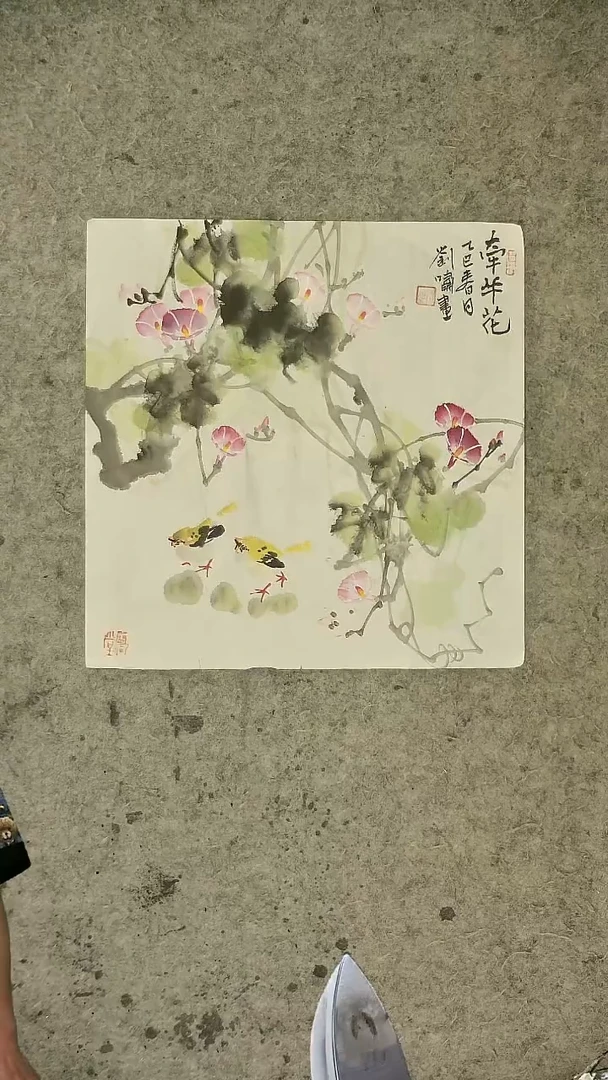 牽牛花
乙巳春日
劉嘯畫